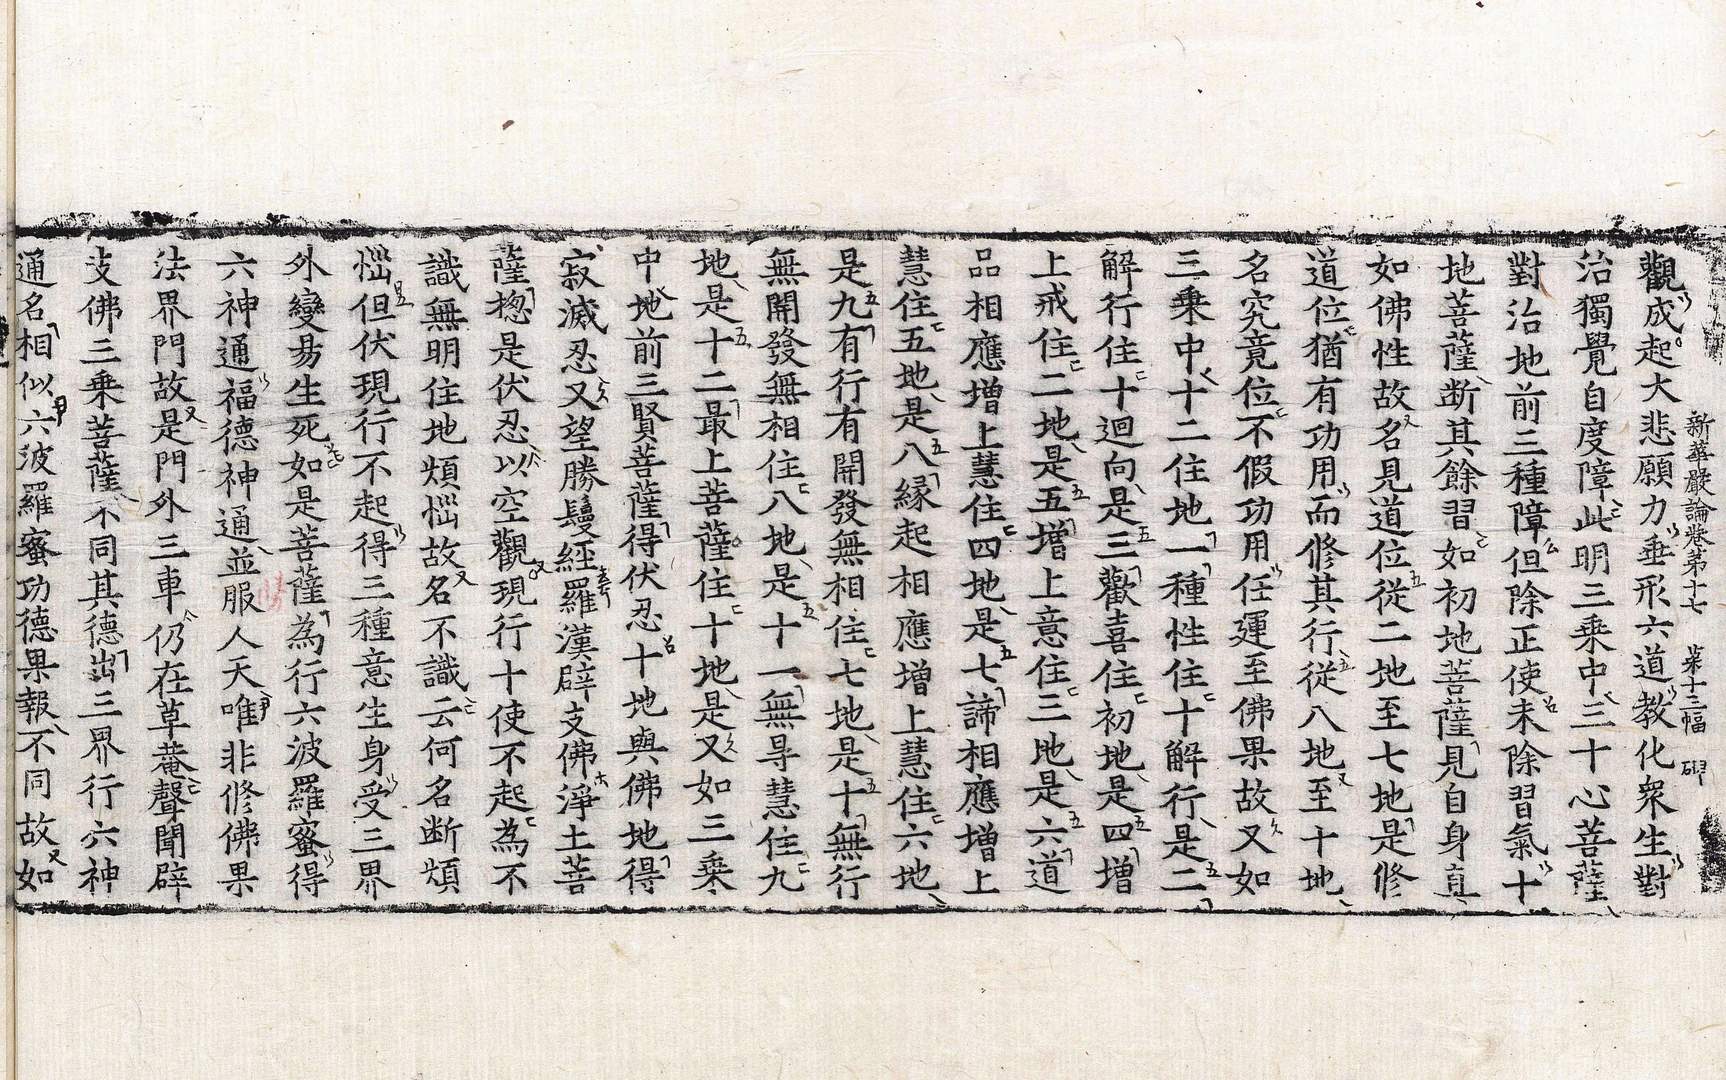 新華嚴論卷第十七 第十三幅
觀成起大悲願力垂形六道教化衆生對
治獨覺自度障此明三乘中三十心菩薩
對治地前三種障但除正使未除習氣十
地菩薩断其餘習如初地菩薩見自身真
如佛性故名見道位從二地至七地是修
道位猶有功用而修其行從八地至十地
名究竟位不假功用任運至佛果故又如
三乘中十二住地一種性住十解行是二
解行住十迴向是三歡喜住初地是四增
上戒住二地是五增上意住三地是六道
品相應增上慧住四地是七諦相應增上
慧住五地是八緣起相應增上慧住六地
是九有行有開發無相住七地是十無行
無開發無相住八地是十一無㝵慧住九
地是十二最上菩薩住十地是又如三乘
中地前三賢菩薩得伏忍十地與佛地得
寂滅忍又望勝鬘經羅漢辟支佛淨土菩
薩揔是伏忍以空觀現行十使不起為不
識無明住地煩惱故名不識云何名断煩
惱但伏現行不起得三種意生身受三界
外變易生死如是菩薩為行六波羅蜜得
六神通福德神通並服人天唯非修佛果
法界門故是門外三車仍在草菴聲聞辟
支佛三乘菩薩不同其德出三界行六神
通名相似六波羅蜜功德果報不同故如